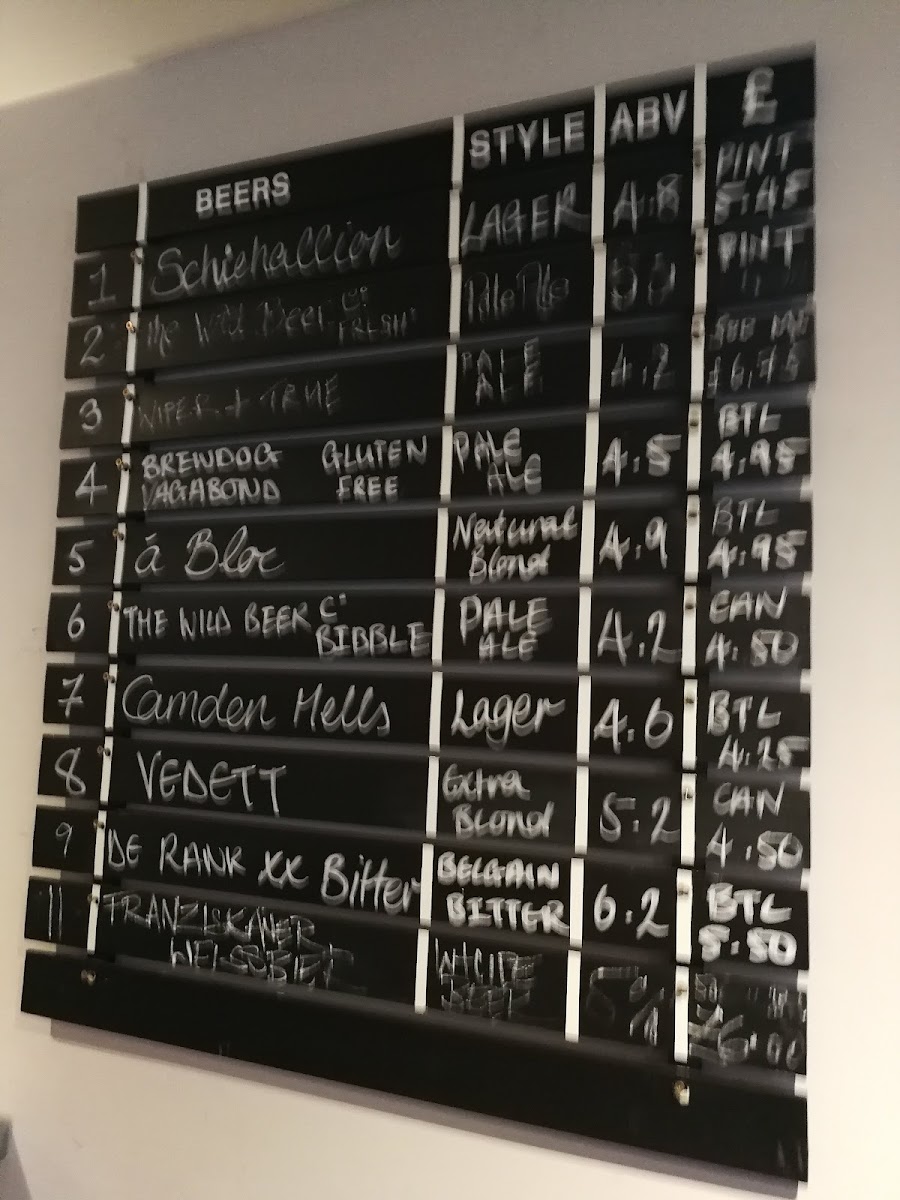 BEERS STYLE ABV £
1 Schiehallion LAGER 4.8 PINT 5.45
2 The Wild Beer Co FRESH Pale PINT
3 WIPER + TRUE PALE ALE 4.2 £6.75
4 BREWDOG VAGABOND GLUTEN FREE PALE ALE 4.5 BTL 4.95
5 á Bloc Natural Blond 4.9 BTL 4.95
6 THE WILD BEER Co BIBBLE PALE ALE 4.2 CAN 4.50
7 Camden Hells Lager 4.6 BTL 4.25
8 VEDETT Extra Blond 5.2 CAN 4.50
9 DE RANK XX Bitter BELGAIN BITTER 6.2 BTL 5.50
11 FRANZISKANER